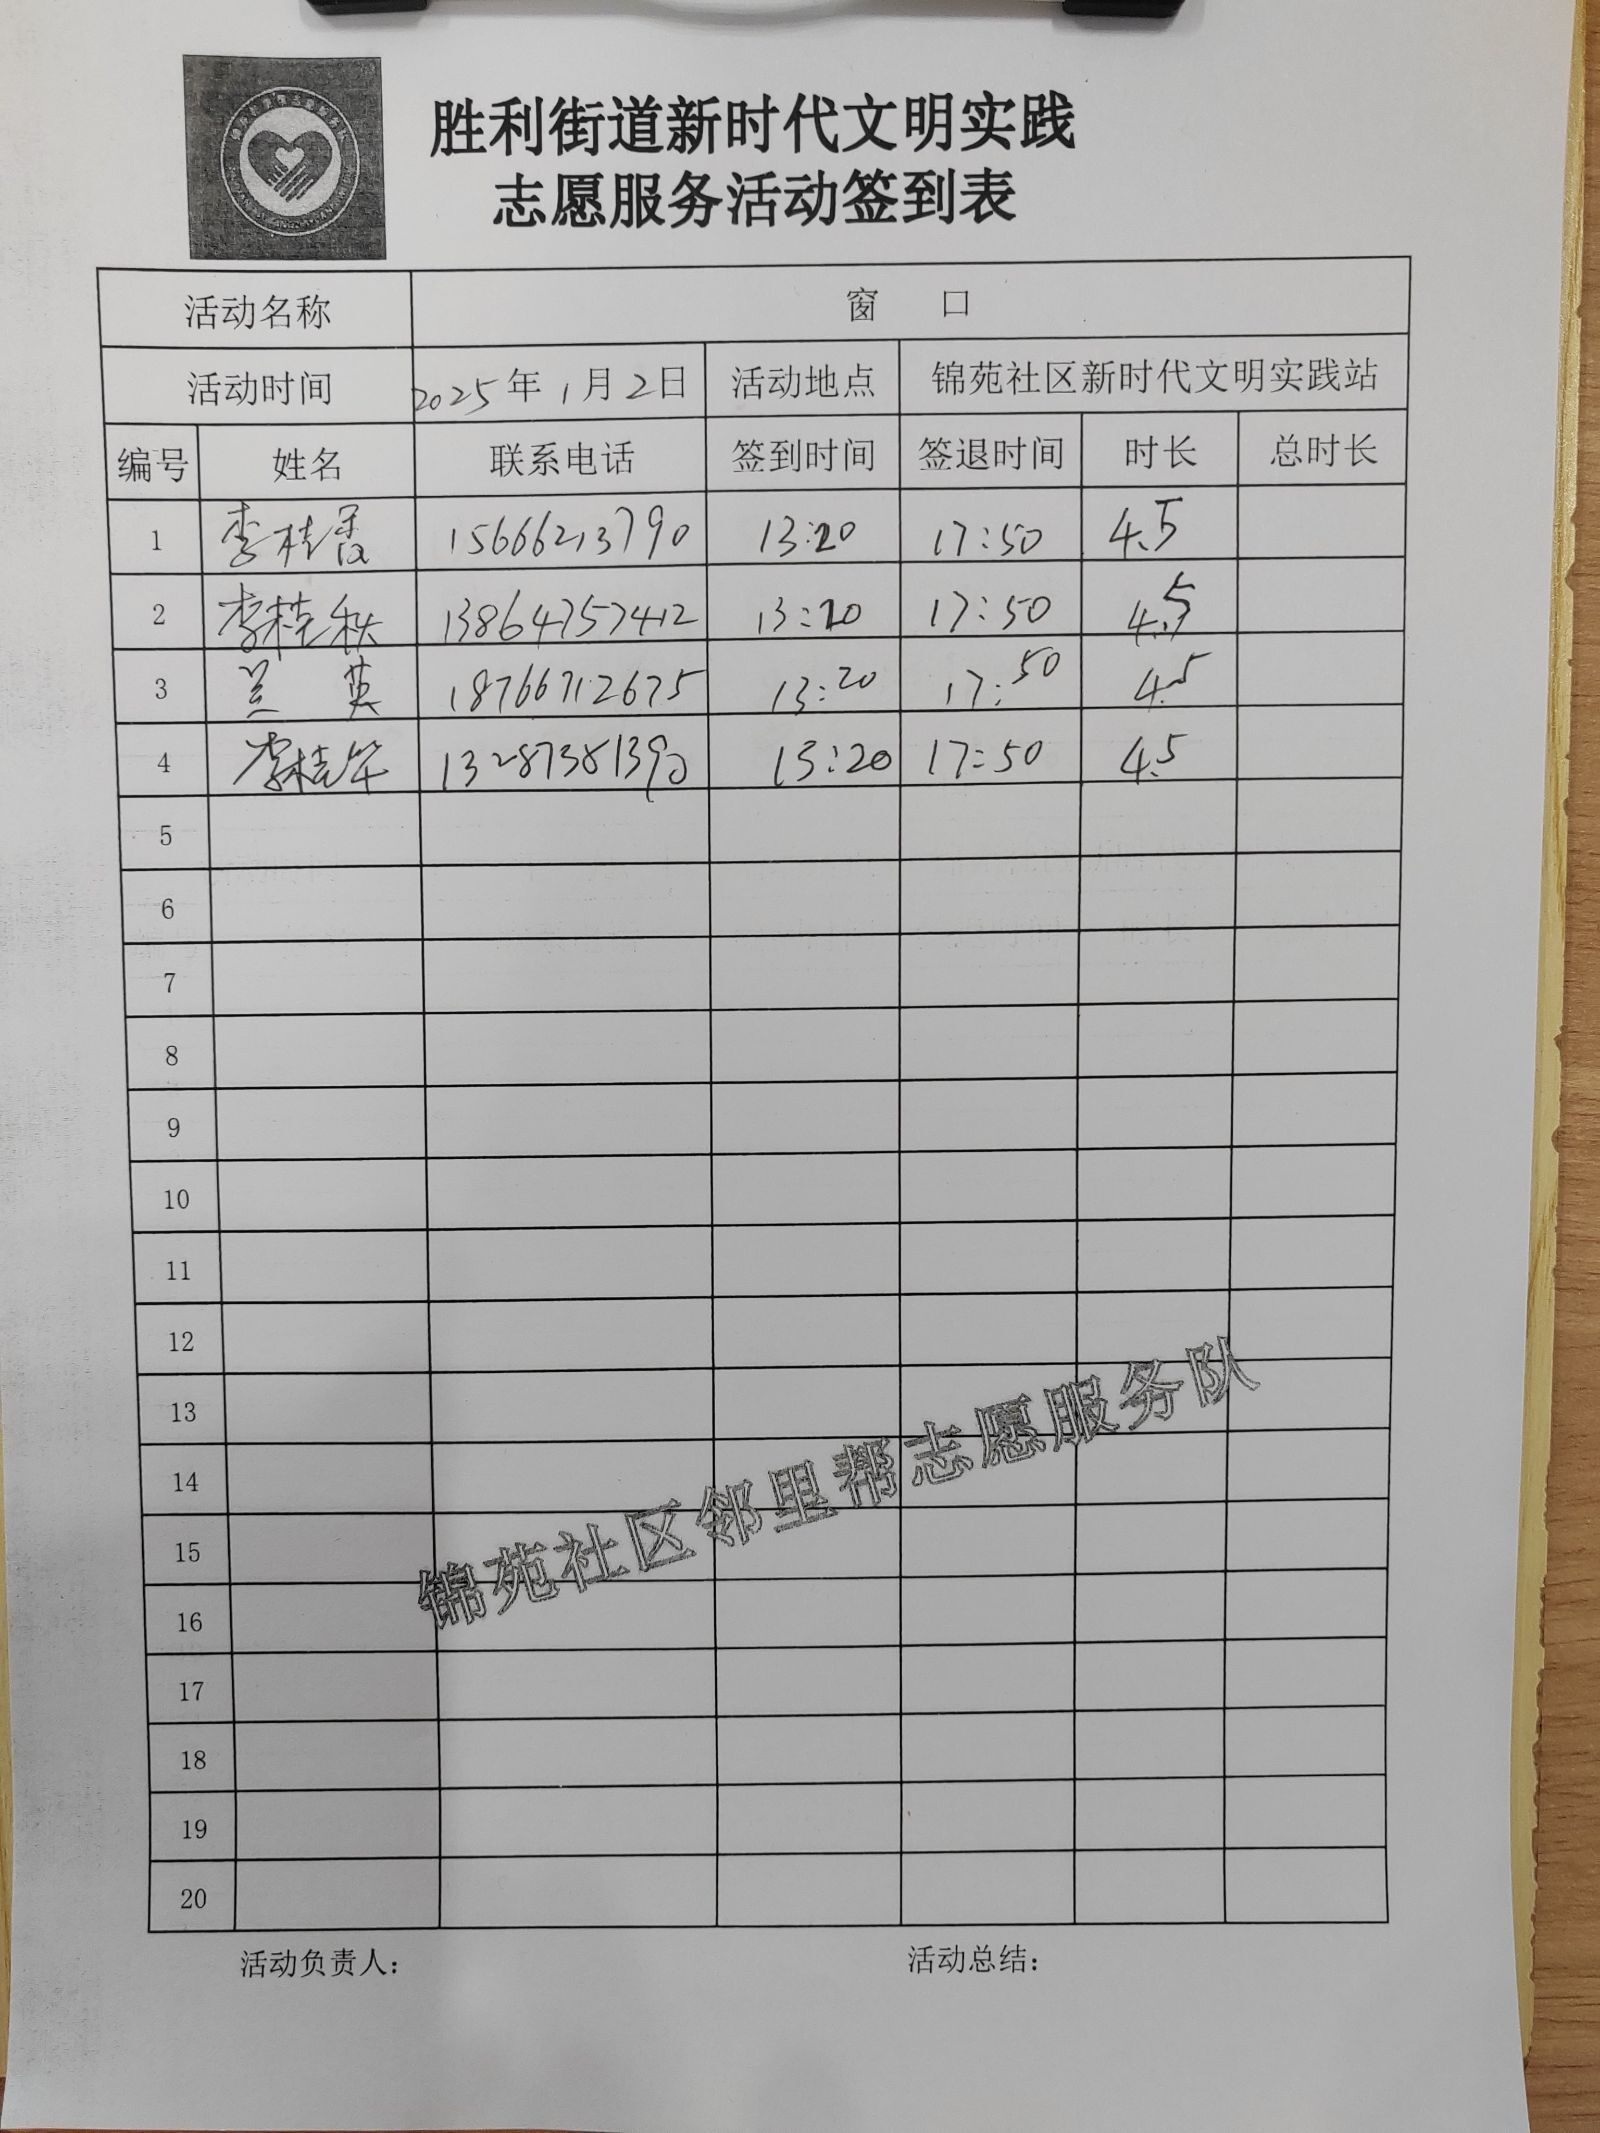 胜利街道新时代文明实践
志愿服务活动签到表
活动名称 窗 口
活动时间 2025年1月2日 活动地点 锦苑社区新时代文明实践站
编号 姓名 联系电话 签到时间 签退时间 时长 总时长
1 李桂香 15666213790 13:20 17:50 4.5
2 李桂秋 13864757412 13:20 17:50 4.5
3 兰 英 18766712675 13:20 17:50 4.5
4 李桂华 13287381390 13:20 17:50 4.5
5
6
7
8
9
10
11
12
13
14
15
16
17
18
19
20
锦苑社区邻里帮志愿服务队
活动负责人: 活动总结: